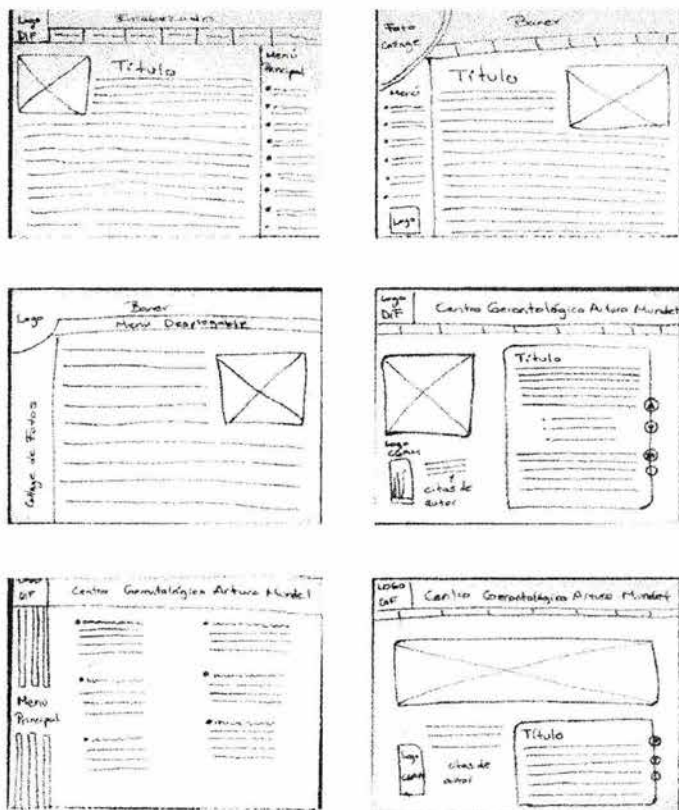 Logo
DIF
Encabezado
Título
Menú
Principal
Foto
Collage
Baner
Menú
Título
Logo
Logo
Baner
Menú Desplegable
Collage de Fotos
Logo
DIF
Centro Gerontológico Arturo Mundet
Título
Logo
CGAM
citas de
autor
LOGO
DIF
Centro Gerontológico Arturo Mundet
Menú
Principal
LOGO
DIF
Centro Gerontológico Arturo Mundet
Logo
CGAM
citas de
autor
Título